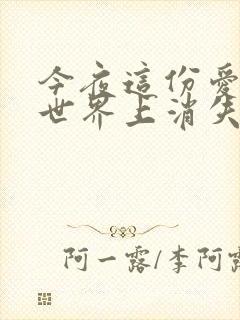 今夜這份愛
世界上消失
阿一露/李阿露